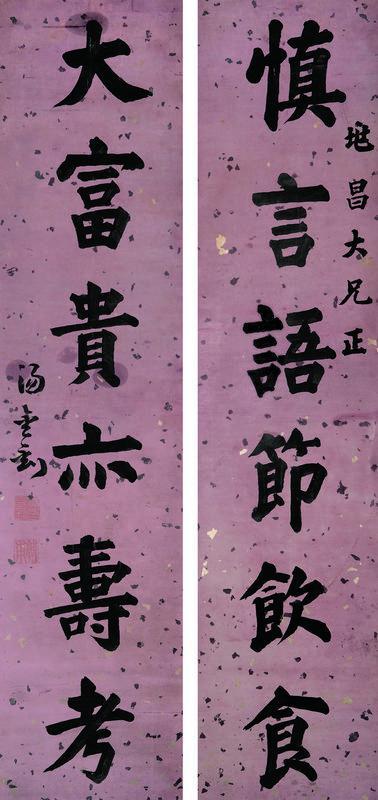 慎言語節飲食
大富貴亦壽考
昌大兄正
湯金釗